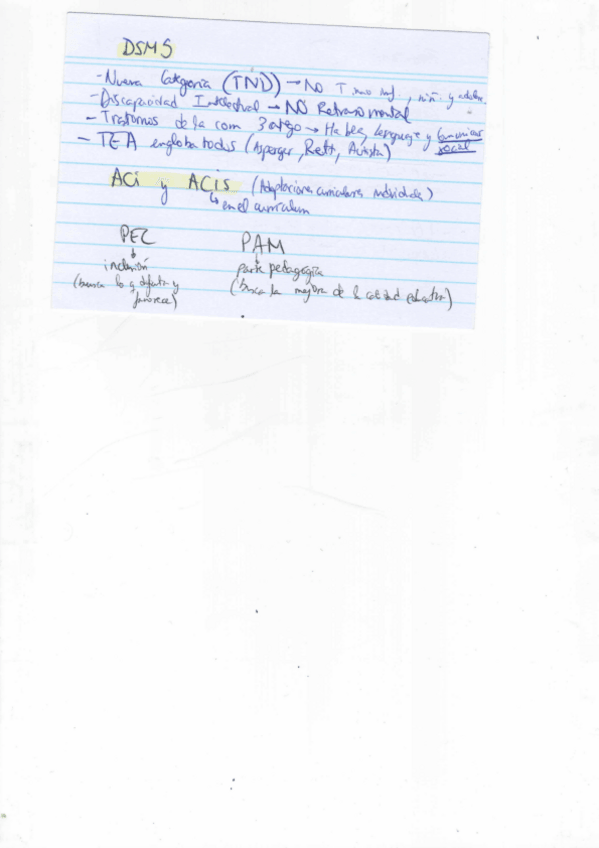 DSM5
- Nueva Categoría (TND) → NO T. inf., niñ. y adol.
- Discapacidad Intelectual → NO Retraso mental
- Trastornos de la com 3 catego → Habla, Lenguaje y Comunicac social
- TEA engloba todos (Asperger, Rett, Autista)
ACi y ACis (Adaptaciones curriculares individuales)
↳ en el curriculum
PEC PAM
↓ ↓
inclusión parte pedagógica
(busca lo q dificulta y favorece) (busca la mejora de la calidad educativa)